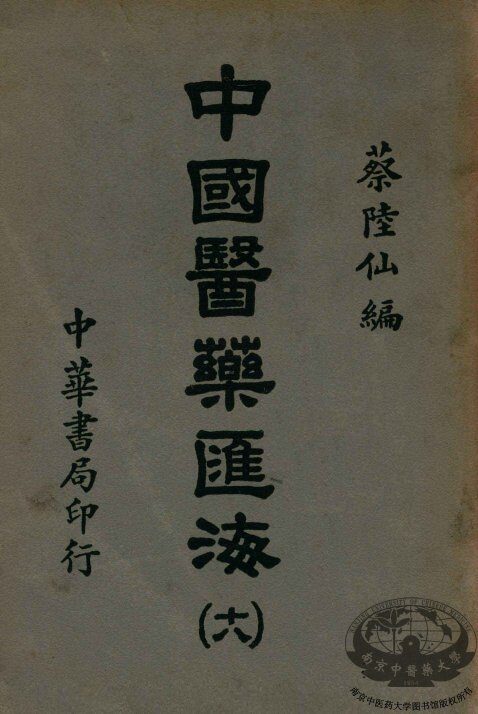 蔡陸仙編
中國醫藥匯海(六)
中華書局印行
南京中醫藥大學
1954
南京中医药大学图书馆版权所有